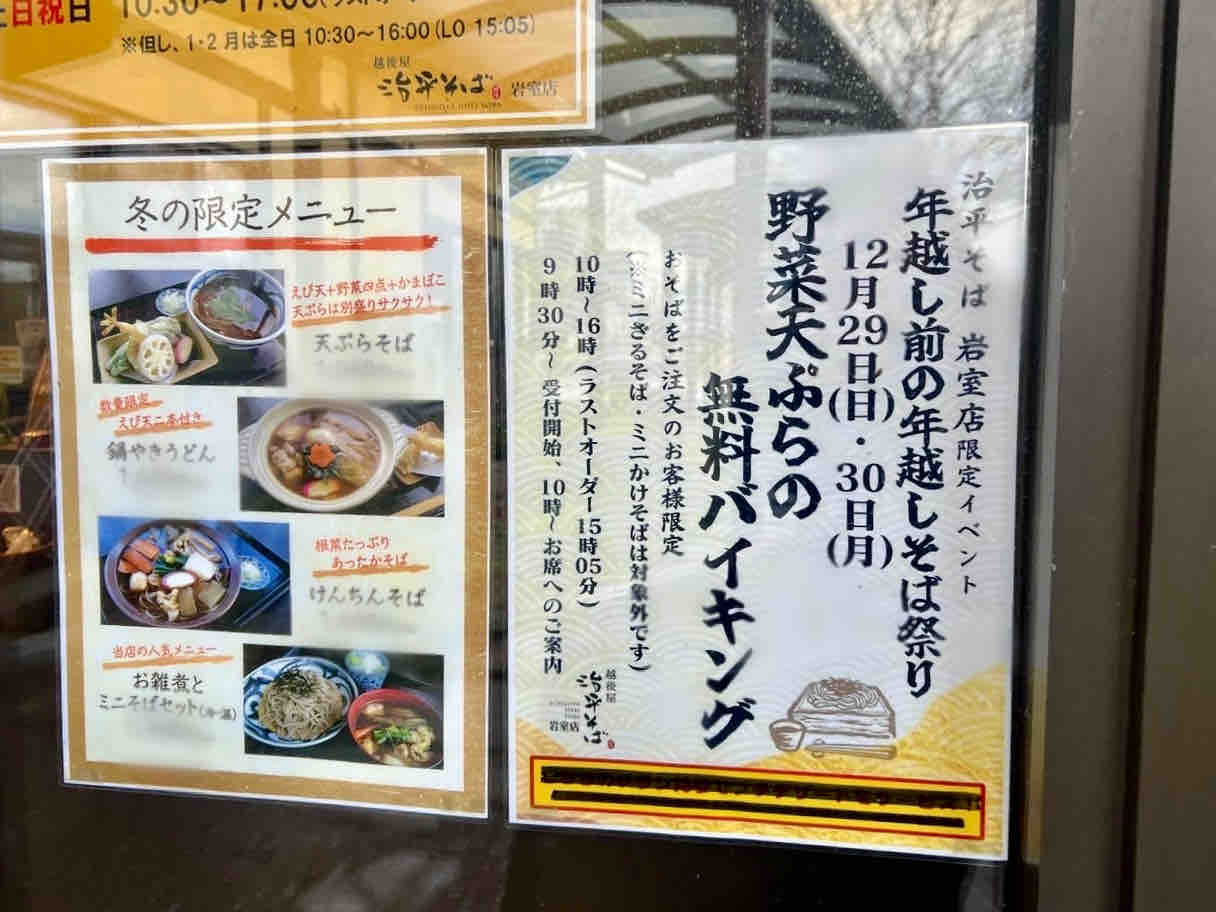 日祝日 10:30～17:00
※但し、1・2月は全日 10:30～16:00(LO 15:05)
越後屋
治平そば 岩室店
冬の限定メニュー
えび天+野菜四点+かまぼこ
天ぷらは別盛りサクサク!
天ぷらそば
数量限定
えび天二本付き
鍋やきうどん
根菜たっぷり
あったかそば
けんちんそば
当店の人気メニュー
お雑煮と
ミニそばセット
治平そば 岩室店限定イベント
年越し前の年越しそば祭り
12月29日(日)・30日(月)
野菜天ぷらの
無料バイキング
おそばをご注文のお客様限定
(※ミニざるそば・ミニかけそばは対象外です)
10時～16時(ラストオーダー15時05分)
9時30分～ 受付開始、10時～お席へのご案内
越後屋
治平そば
岩室店